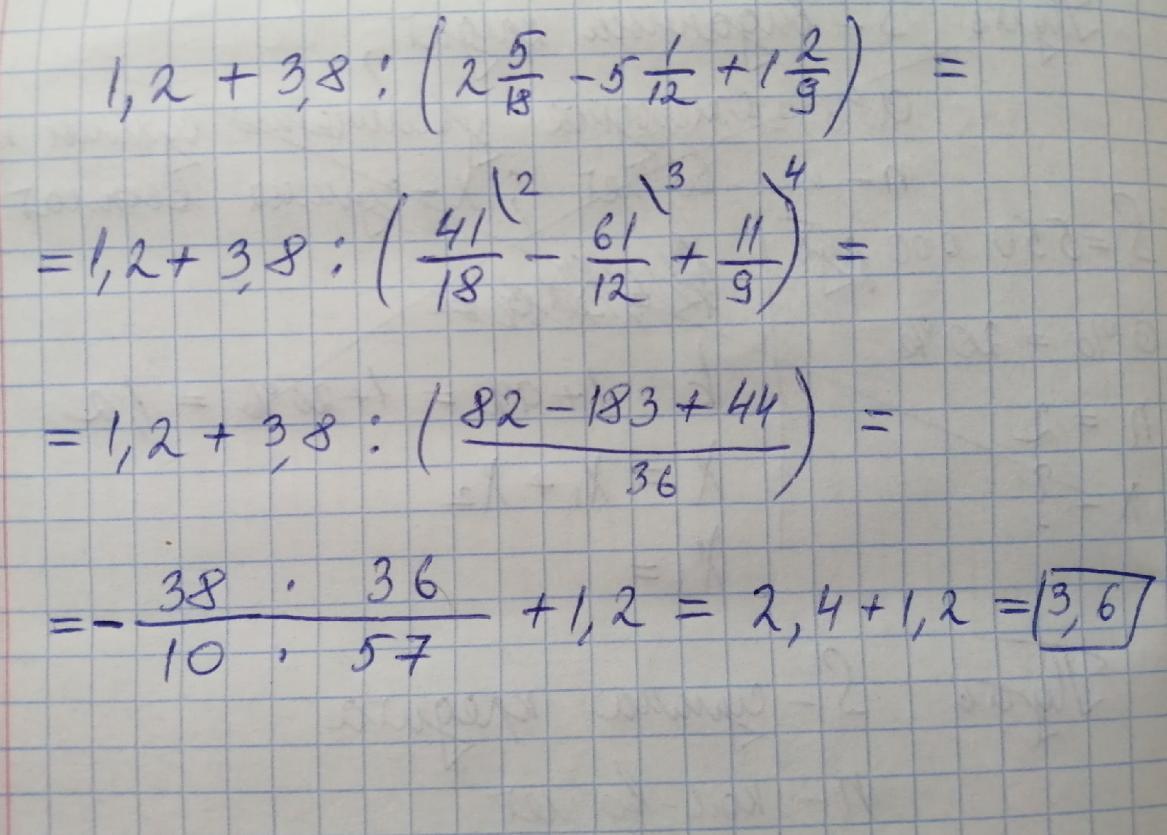 1,2 + 3,8 : (2 5/18 - 5 1/12 + 1 2/9) =
= 1,2 + 3,8 : (41/18 \2 - 61/12 \3 + 11/9 \4) =
= 1,2 + 3,8 : ((82 - 183 + 44)/36) =
= - (38 · 36)/(10 · 57) + 1,2 = 2,4 + 1,2 = 3,6